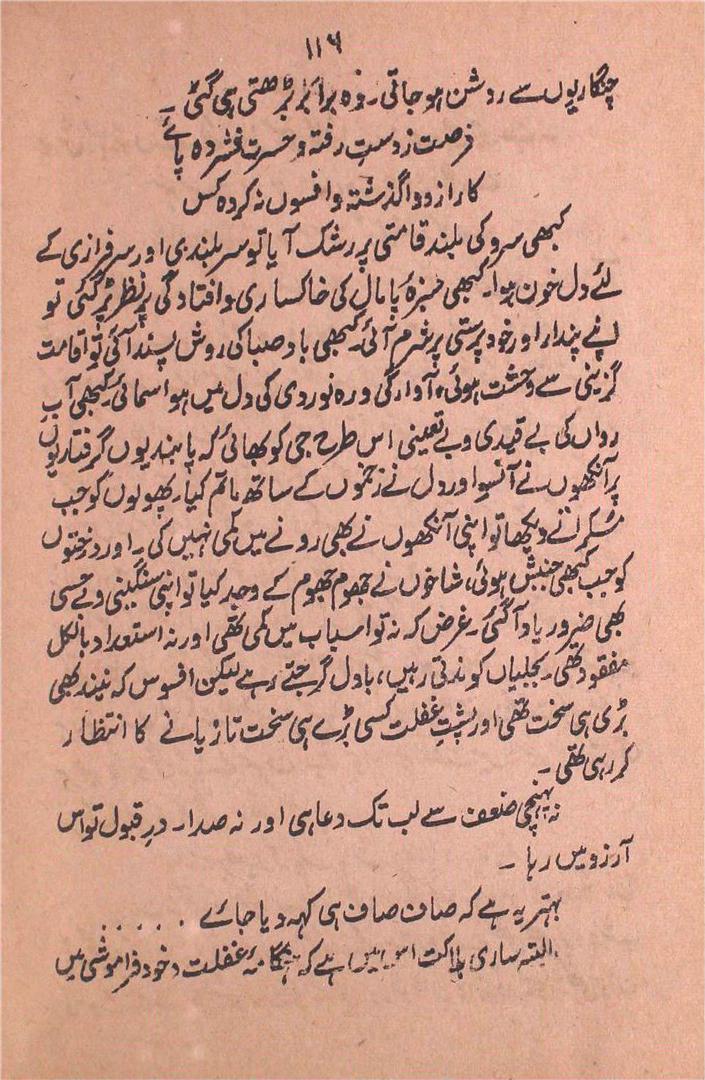 ۱۱۶
چنگاریوں سے روشن ہو جاتی۔ وہ برابر بڑھتی ہی گئی۔
فرصت ز دست رفتہ و حسرت فشردہ پائے
کار از دوا گذشتہ و افسوں نہ کردہ کس
کبھی سرو کی بلند قامتی پر رشک آیا تو سر بلندی اور سرفرازی کے
لئے دل خون ہوا۔ کبھی سبزۂ پامال کی خاکساری و افتادگی پر نظر پڑ گئی تو
اپنے پندار اور خود پرستی پر شرم آئی۔ کبھی باد صبا کی روش پسند آئی تو اقامت
گزینی سے وحشت ہوئی، آوارگی و رہ نوردی کی دل میں ہوا سمائی۔ کبھی آبِ
رواں کی بے قیدی و بے تعینی اس طرح جی کو بھائی کہ پابندیوں گرفتاریوں
پر آنکھوں نے آنسو اور دل نے زخموں کے ساتھ ماتم کیا۔ پھولوں کو جب
مسکراتے دیکھا تو اپنی آنکھوں نے بھی رونے میں کمی نہیں کی۔ اور درختوں
کو جب کبھی جنبش ہوئی، شاخوں نے جھوم جھوم کے وجد کیا تو اپنی سنگینی و بے حسی
بھی ضرور یاد آ گئی۔ غرض کہ نہ تو اسباب میں کمی تھی اور نہ استعداد بالکل
مفقود تھی۔ بجلیاں کوندتی رہیں، بادل گرجتے رہے لیکن افسوس کہ نیند بھی
بڑی ہی سخت تھی اور پشتِ غفلت کسی بڑے ہی سخت تازیانے کا انتظار
کر رہی تھی۔
نہ پہنچی ضعف سے لب تک دعا ہی اور نہ صدا۔ درِ قبول تو اس
آرزو میں رہا۔
بہتر یہ ہے کہ صاف صاف ہی کہہ دیا جائے . . . . .
البتہ ساری ہلاکت اس میں ہے کہ ہنگامۂ غفلت و خود فراموشی میں